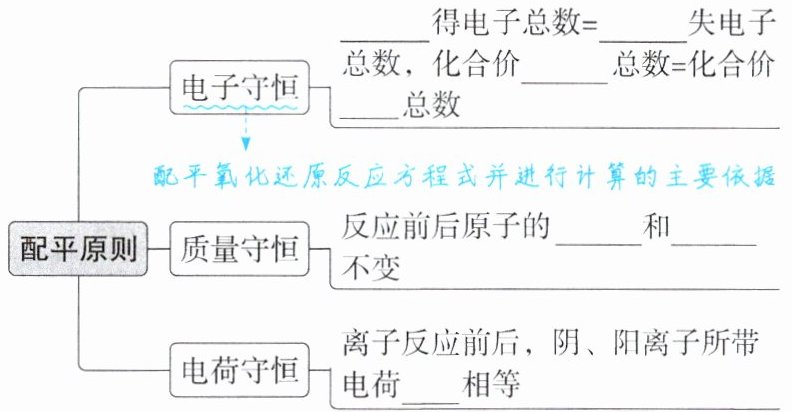 ______得电子总数=______失电子
总数，化合价______ 总数=化合价
____总数
电子守恒
配平氧化还原反应方程式并进行计算的主要依据
配平原则
质量守恒
反应前后原子的______和______
不变
电荷守恒
离子反应前后，阴、阳离子所带
电荷____相等